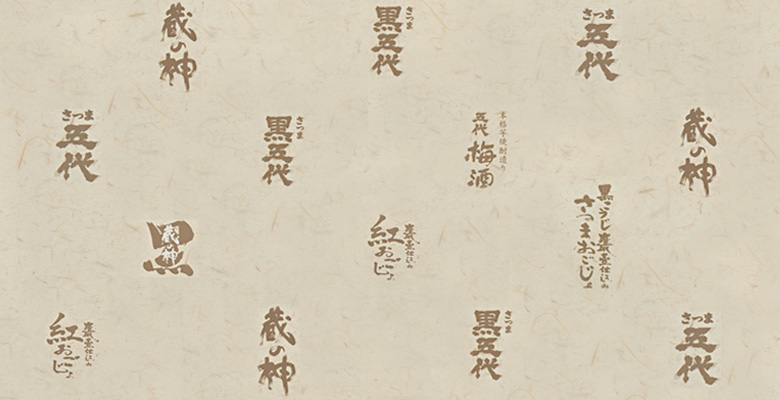 蔵の神
さつま
黒五代
さつま
五代
さつま
五代
さつま
黒五代
本格芋焼酎造り
五代
梅酒
蔵の神
黒
蔵の神
甕壷仕込み
紅おごじょ
黒こうじ甕壷仕込み
さつまおごじょ
甕壷仕込み
紅おごじょ
蔵の神
さつま
黒五代
さつま
五代